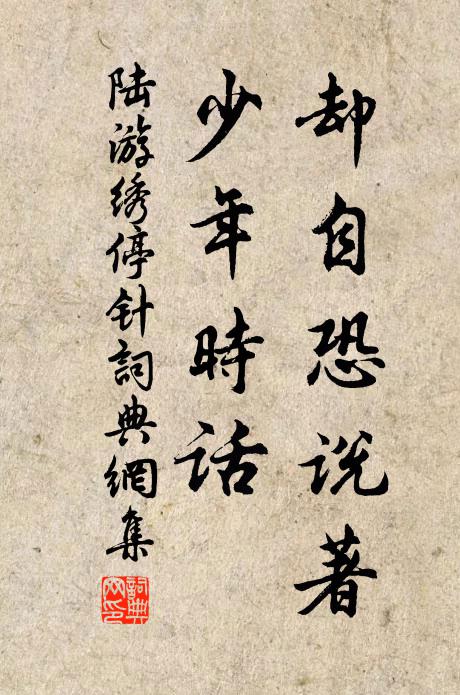 却自恐说著
少年時话
陆游绣停针詞典網集
詞典
网印